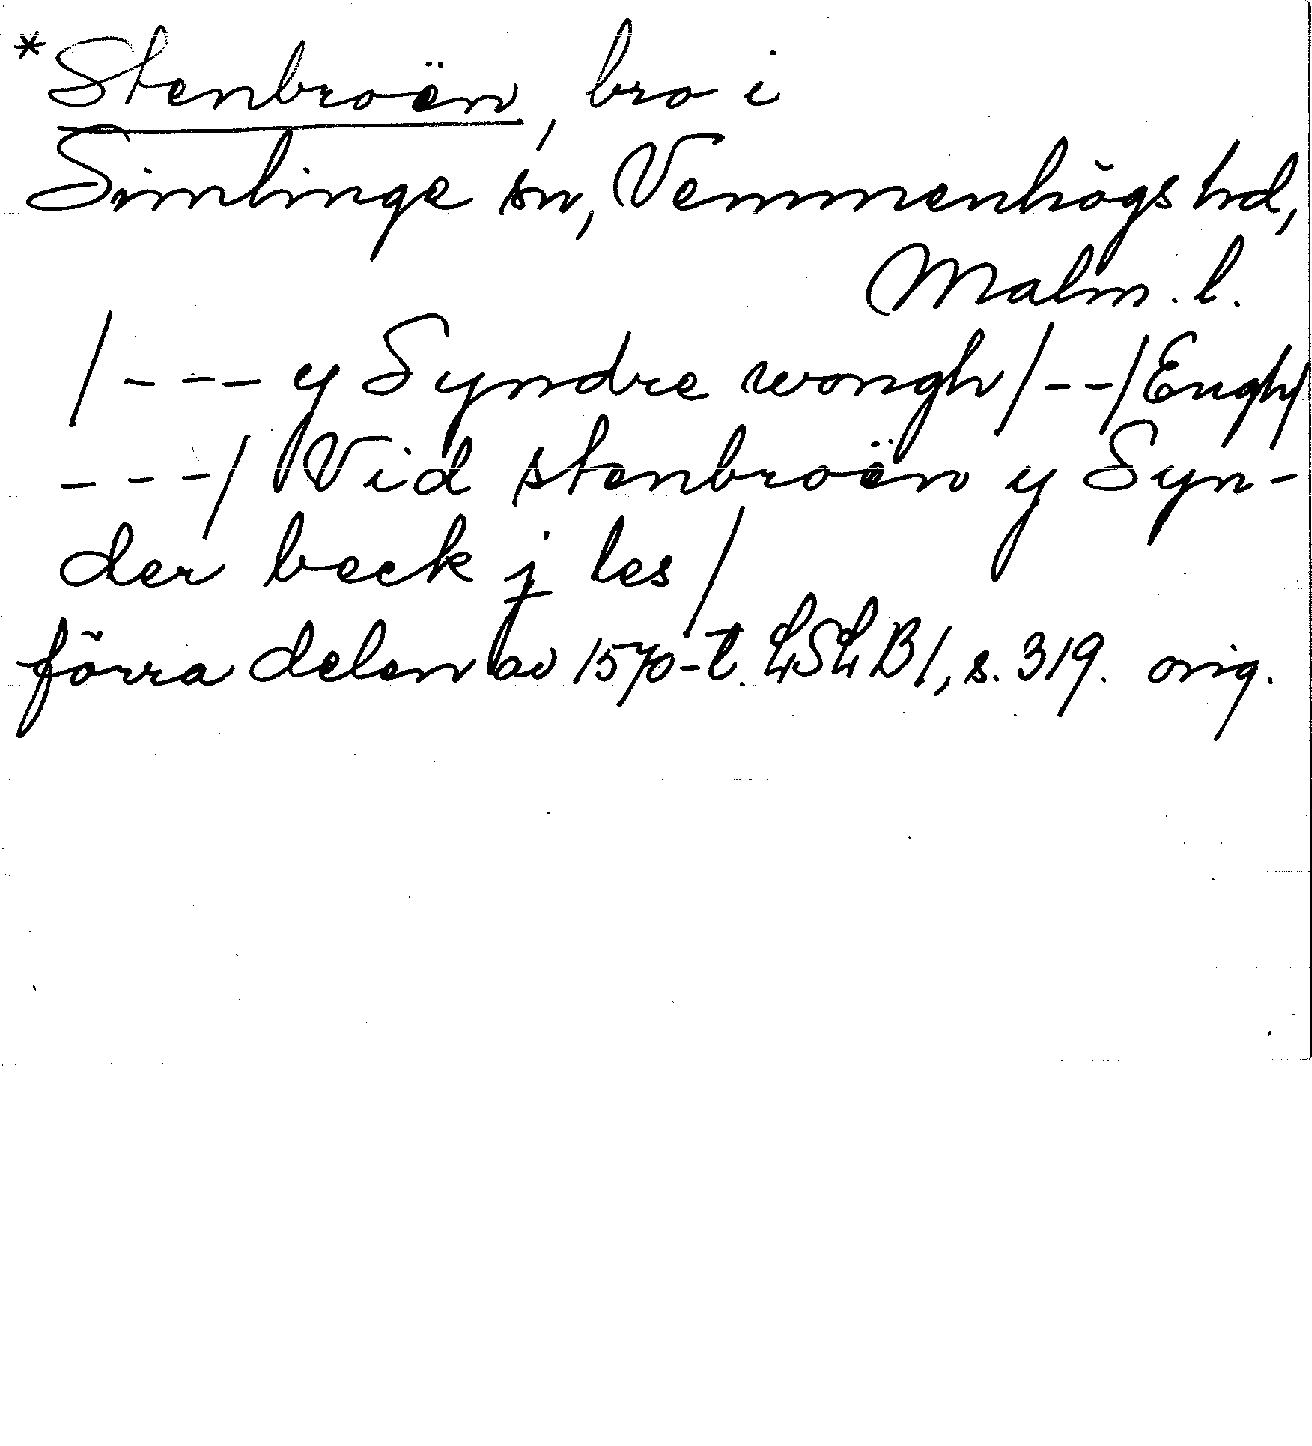 *Stenbroën, bro i
Simlinge sn, Vemmenhögs hd,
Malm. l.
/--- y Syndre wongh/--/Eugh/
---/ Vid stenbroën y Syn-
der beck j les/
förra delen av 1570-t. LSLB1, s. 319. orig.